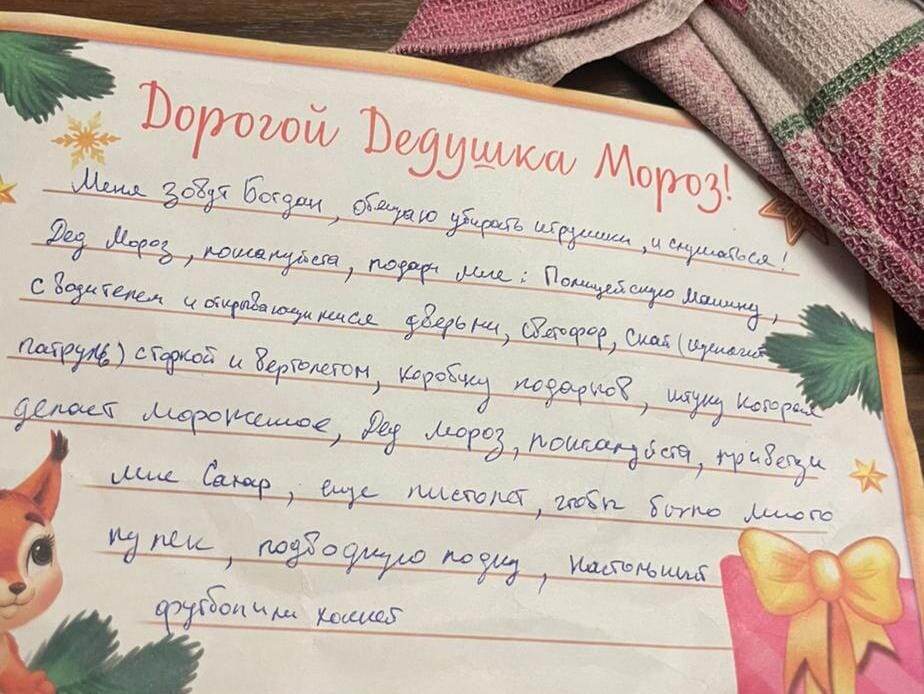 Дорогой Дедушка Мороз!
Меня зовут Богдан, обещаю убирать игрушки, и слушаться!
Дед Мороз, пожалуйста, подари мне: Полицейскую машину,
с водителем и открывающимися дверьми, светофор, Скай (щенячий
патруль) с горкой и вертолетом, коробку подарков, штуку которая
делает мороженое, Дед Мороз, пожалуйста, привези
мне Сахар, еще пистолет, чтобы было много
пулек, подводную лодку, настольный
футбол или хоккей